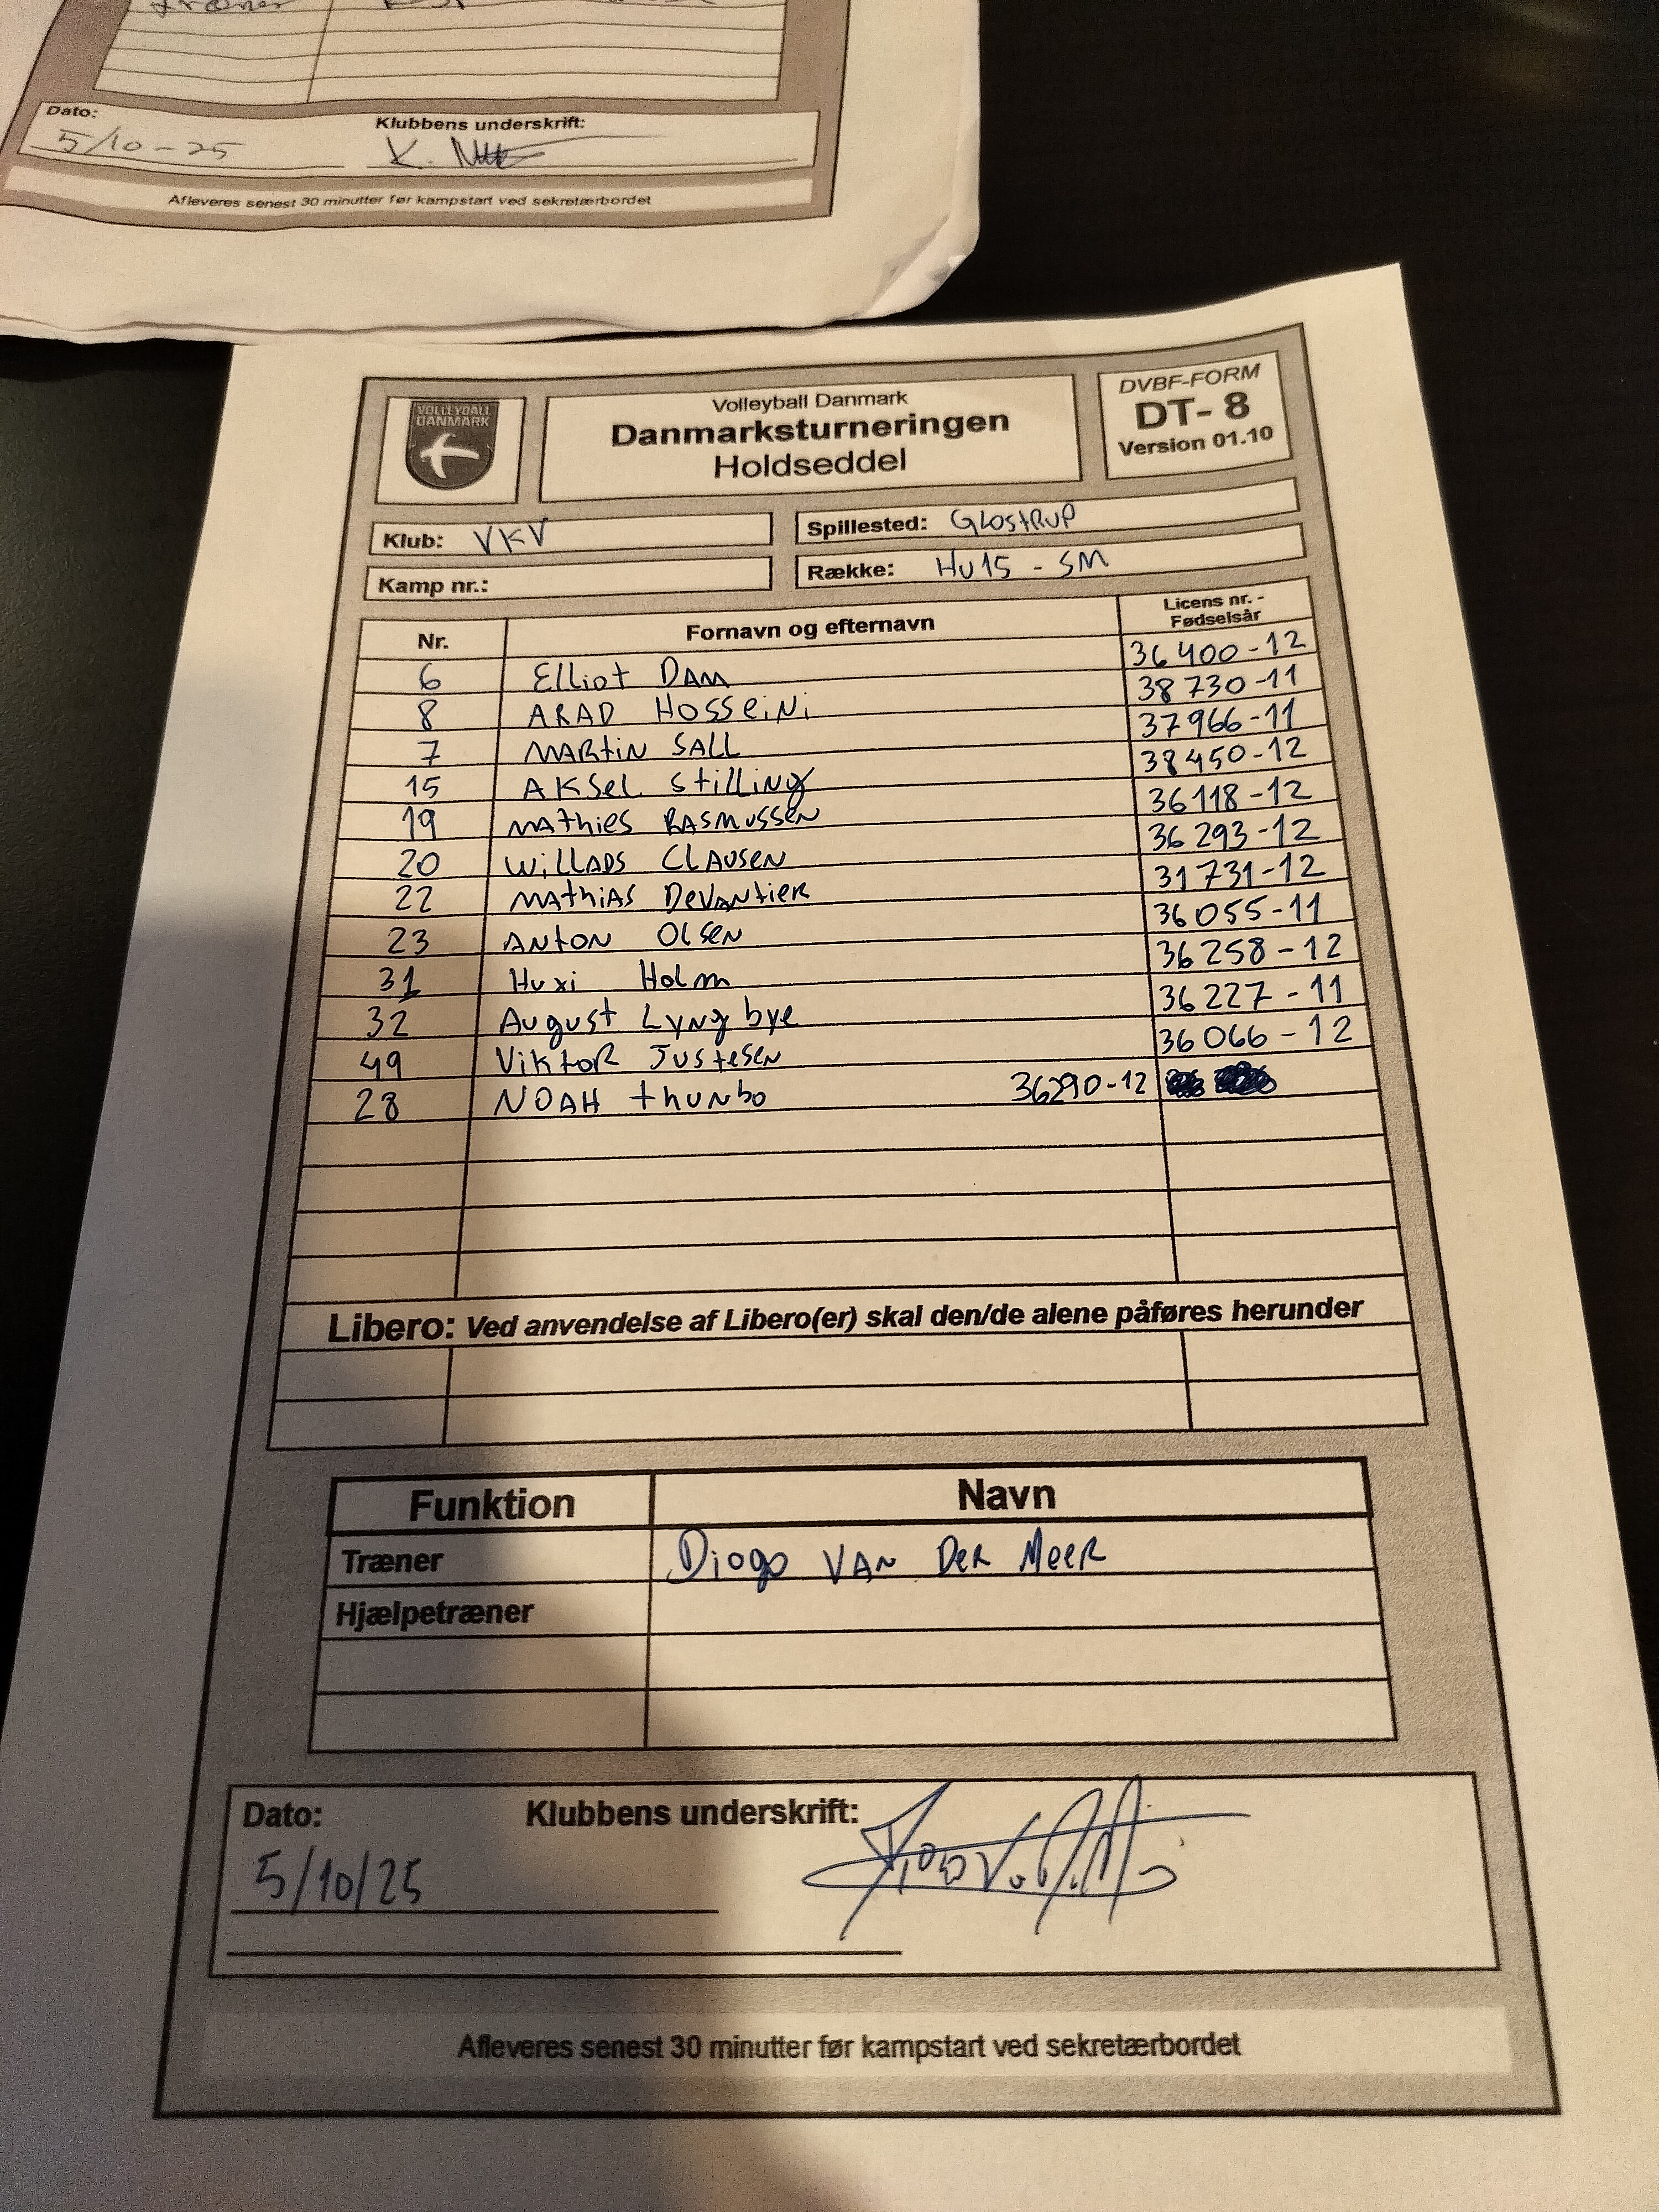 Dato:
Klubbens underskrift:
5/10-25
K.
Afleveres senest 30 minutter før kampstart ved sekretærbordet
VOLLEYBALL
DANMARK
Volleyball Danmark
Danmarksturneringen
Holdseddel
DVBF-FORM
DT- 8
Version 01.10
Klub: VKV
Spillested: GLOSTRUP
Kamp nr.:
Række: HU15 - SM
Nr. Fornavn og efternavn Licens nr. -
Fødselsår
6 Elliot DAM 36400-12
8 ARAD HOSSEiNi 38730-11
7 MARtiN SALL 37966-11
15 AKSEL StilliNg 38450-12
19 MAthiES RASMUSSEN 36118-12
20 WiLLADS CLAUSEN 36293-12
22 MAthiAS DEVANtiER 31731-12
23 ANtON OlSEN 36055-11
31 Huxi Holm 36258-12
32 August Lyngbye 36227-11
49 ViktOR JUStESEN 36066-12
28 NOAH thUNbo 36290-12
Libero: Ved anvendelse af Libero(er) skal den/de alene påføres herunder
Funktion Navn
Træner Diogo VAN DER MEER
Hjælpetræner
Dato: Klubbens underskrift:
5/10/25
Afleveres senest 30 minutter før kampstart ved sekretærbordet